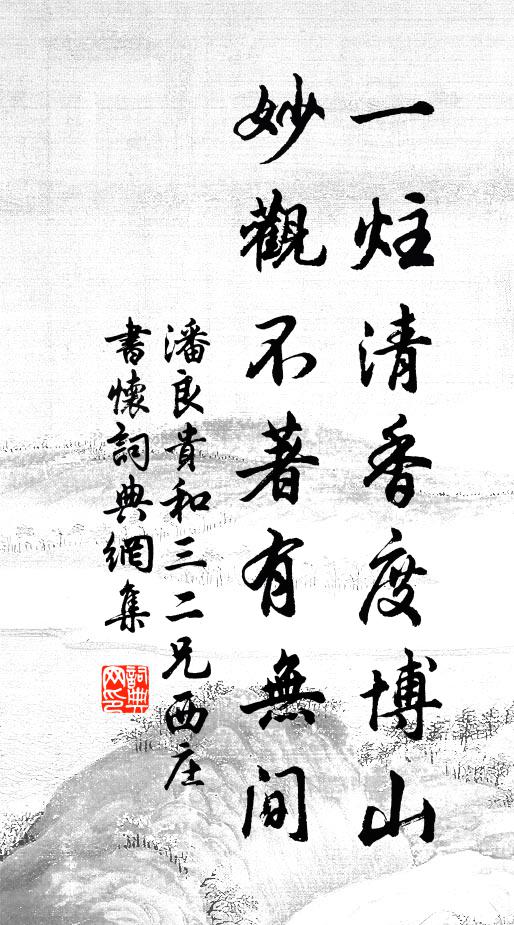 一炷清香度博山
妙觀不著有無間
潘良貴和三二兄西庄
書懷詞典網集
詞典網印